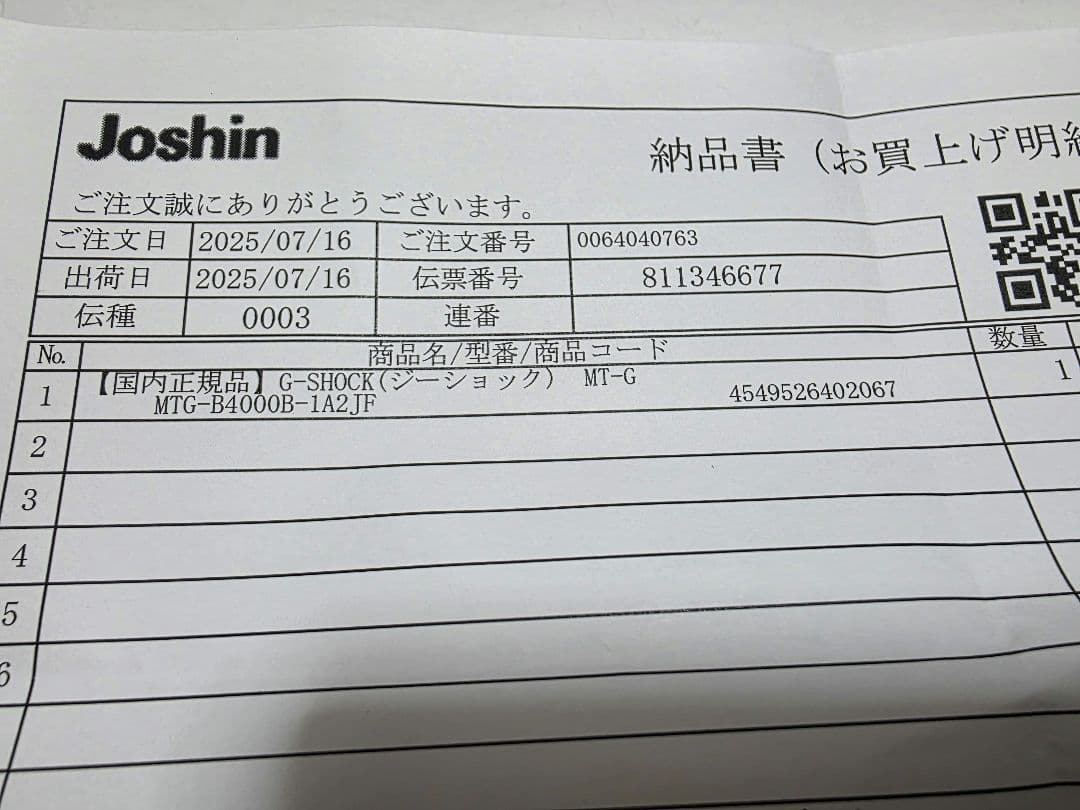 Joshin
納品書（お買上げ明細
ご注文誠にありがとうございます。
ご注文日 2025/07/16 ご注文番号 0064040763
出荷日 2025/07/16 伝票番号 811346677
伝種 0003 連番
No. 商品名/型番/商品コード 数量
1 【国内正規品】G-SHOCK(ジーショック) MT-G 1
MTG-B4000B-1A2JF 4549526402067
2
3
4
5
6